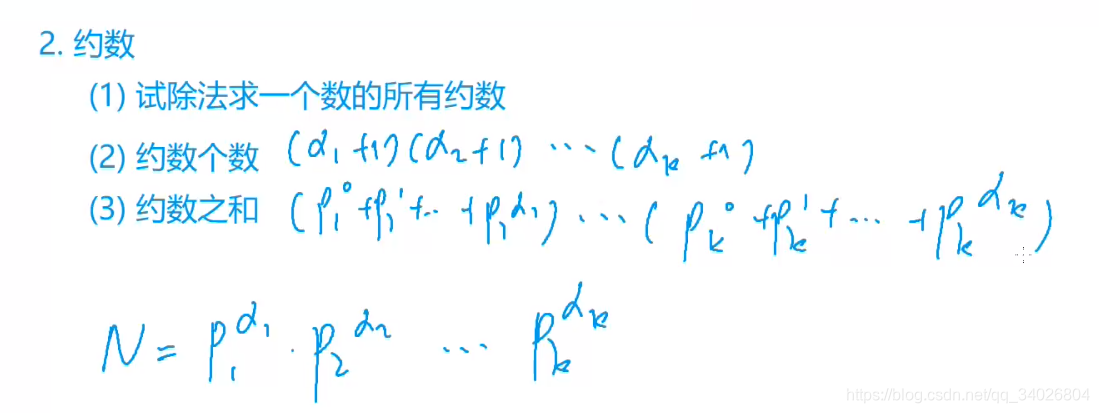 2. 约数
(1) 试除法求一个数的所有约数
(2) 约数个数 (α₁+1)(α₂+1) ⋯ (αₖ+1)
(3) 约数之和 (p₁⁰+p₁¹+⋯+p₁^α₁) ⋯ (pₖ⁰+pₖ¹+⋯+pₖ^αₖ)
N = p₁^α₁ · p₂^α₂ ⋯ pₖ^αₖ
https://blog.csdn.net/qq_34026804